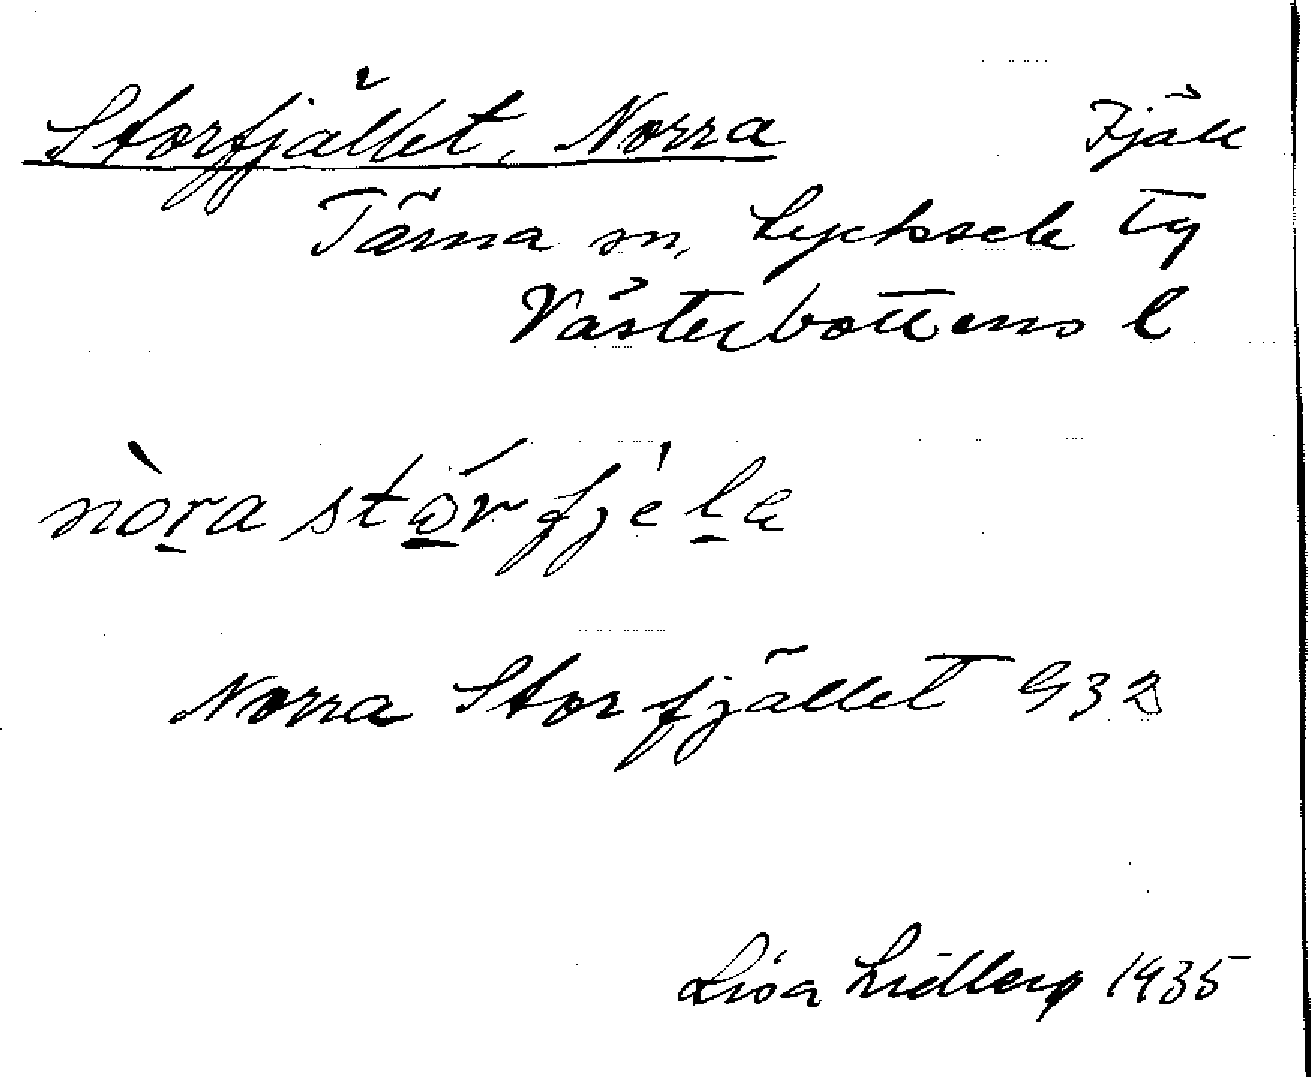 Storfjället, Norra Fjäll
Tärna sn, Lycksele tg
Västerbottens l
nòra stó̱r fjèla
Norra Storfjället G32
Lisa Lidberg 1935